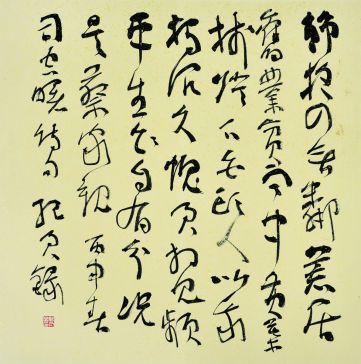 静夜四無鄰荒居
舊業貧雨中黄葉
樹燈下白頭人以我
獨沉久愧君相見頻
平生自有分况
是蔡家親 丙申春
司空曙詩句